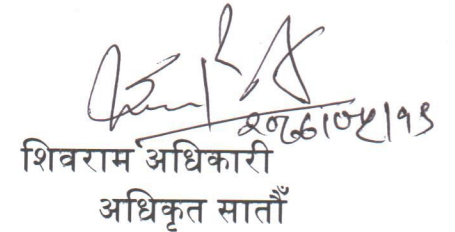 २०७८।०५।१९
शिवराम अधिकारी
अधिकृत सातौँ